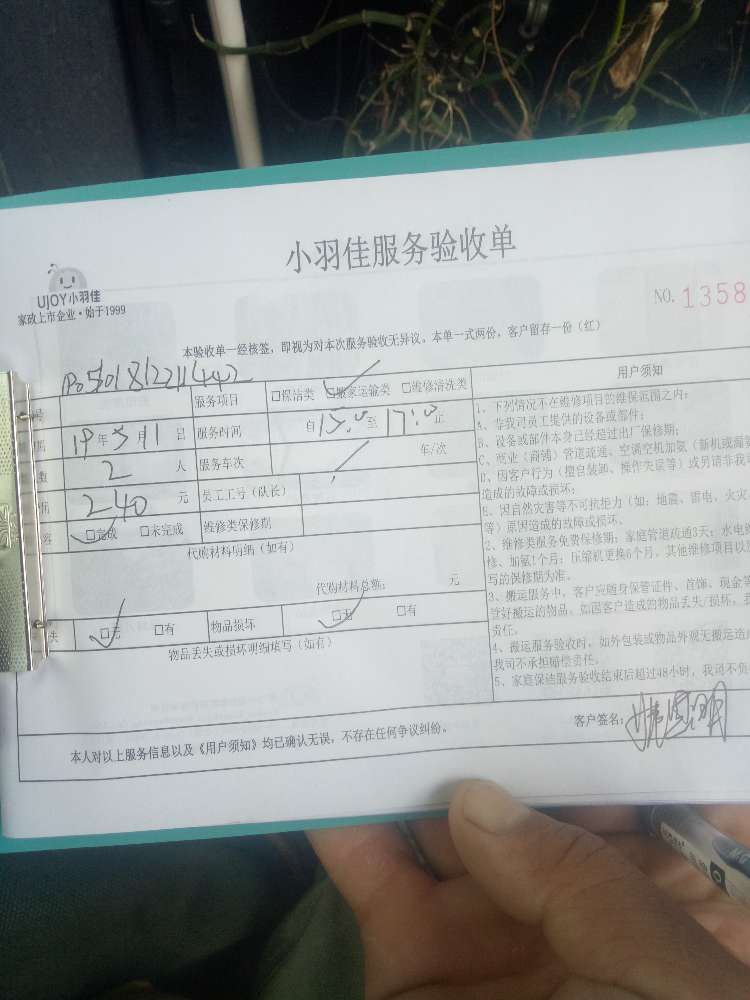 小羽佳服务验收单
UJOY小羽佳
家政上市企业·始于1999
NO. 1358
本验收单一经核签，即视为对本次服务验收无异议。本单一式两份，客户留存一份（红）
服务项目 □保洁类 □搬家运输类 □维修清洗类
19年5月1日 服务时间 自15:0至17:0止
2人 服务车次 车/次
240元 员工工号（队长）
□完成 □未完成 维修类保修期
代购材料明细（如有）
代购材料总额： 元
失 □无 □有 物品损坏 □无 □有
物品丢失或损坏明细填写（如有）
用户须知
1、下列情况不在维修项目的维保范围之内：
A、非我司员工提供的设备或部件；
B、设备或部件本身已经超过出厂保修期；
C、商业（商铺）管道疏通、空调空机加氨（新机或漏氨
D、因客户行为（擅自装卸、操作失误等）或另请非我司
造成的故障或损坏；
E、因自然灾害等不可抗拒力（如：地震、雷电、火灾
等）原因造成的故障或损坏。
2、维修类服务免费保修期：家庭管道疏通3天；水电维
修、加氨1个月；压缩机更换6个月。其他维修项目以
写的保修期为准。
3、搬运服务中，客户应随身保管证件、首饰、现金等
管好搬运的物品。如因客户造成的物品丢失/损坏，我
责任。
4、搬运服务验收时，如外包装或物品外观无搬运造
我司不承担赔偿责任。
5、家庭保洁服务验收结束后超过48小时，我司不负
本人对以上服务信息以及《用户须知》均已确认无误，不存在任何争议纠纷。
客户签名：